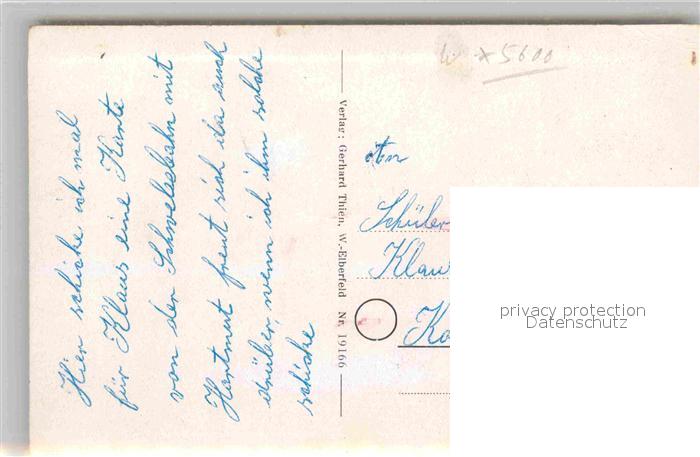 Hier schicke ich mal
für Klaus eine Karte
von der Schwebebahn mit
Hartmut freut sich da auch
drüber, wenn ich ihm solche
schicke
Verlag: Gerhard Thien, W.-Elberfeld Nr. 19166
W *5600
An
Schüler
Klau
Ko
privacy protection
Datenschutz